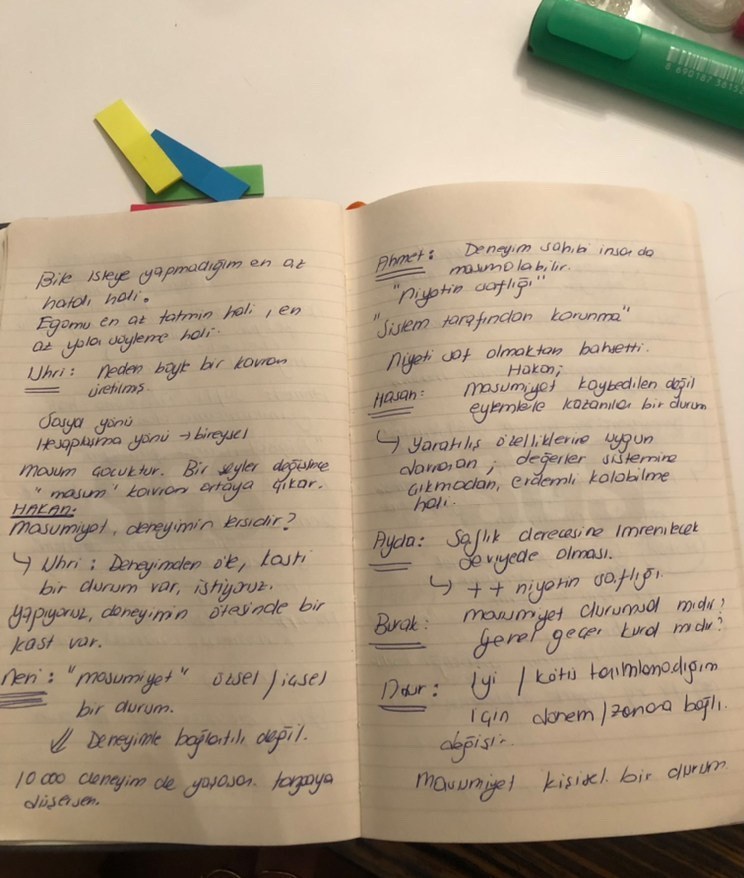 Bile isteye yapmadığım en az
hatalı hali.
Egomu en az tatmin hali, en
az yalan söyleme hali.
Uhri: Neden böyle bir kavram
üretilmiş
Sosya yönü
Hesaplaşma yönü → bireysel
Masum çocuktur. Bir şeyler değişince
"masum" kavramı ortaya çıkar.
HAKAN:
Masumiyet, deneyimin tersidir?
↳ Uhri: Deneyimden öte, kasti
bir durum var, istiyoruz.
Yapıyoruz, deneyimin ötesinde bir
kast var.
Neri: "masumiyet" özsel / içsel
bir durum.
⇓ Deneyimle bağlantılı değil.
10 000 deneyim de yaşasan
düşersen.
Ahmet: Deneyim sahibi insan da
masum olabilir.
"Niyetin saflığı"
"Sistem tarafından korunma"
Niyeti saf olmaktan bahsetti.
Hakan;
Hasan: Masumiyet kaybedilen değil
eylemlerle kazanılan bir durum
↳ Yaratılış özelliklerine uygun
davranan; değerler sistemine
çıkmadan, erdemli kalabilme
hali.
Ayda: Saflık derecesine imrenilecek
seviyede olması.
↳ ++ niyetin saflığı.
Burak: masumiyet durumsal mıdır?
Genel geçer kural mıdır?
: İyi / kötü tanımlanadığım
için dönem / zamana bağlı.
değişir.
Masumiyet kişisel bir durum
8 690167 38152